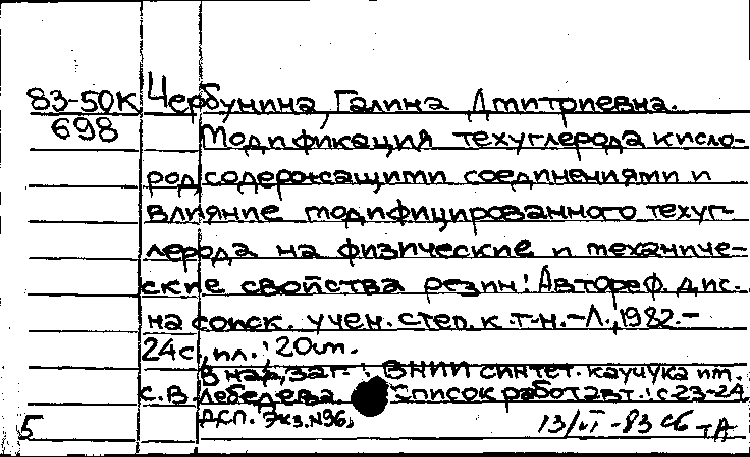 83-50К Чербунина, Галина Дмитриевна.
698 Модификация техуглерода кисло-
родсодержащими соединениями и
влияние модифицированного техуг-
лерода на физические и механиче-
ские свойства резин: Автореф. дис.
на соиск. учен. степ. к. т. н. - Л., 1982. -
24с., ил.; 20см.
В надзаг.: ВНИИ синтет. каучука им.
С.В. Лебедева. Список работ авт.: с 23-24
ДСП. Экз. №96.
5 13/VI-83 сб ТА